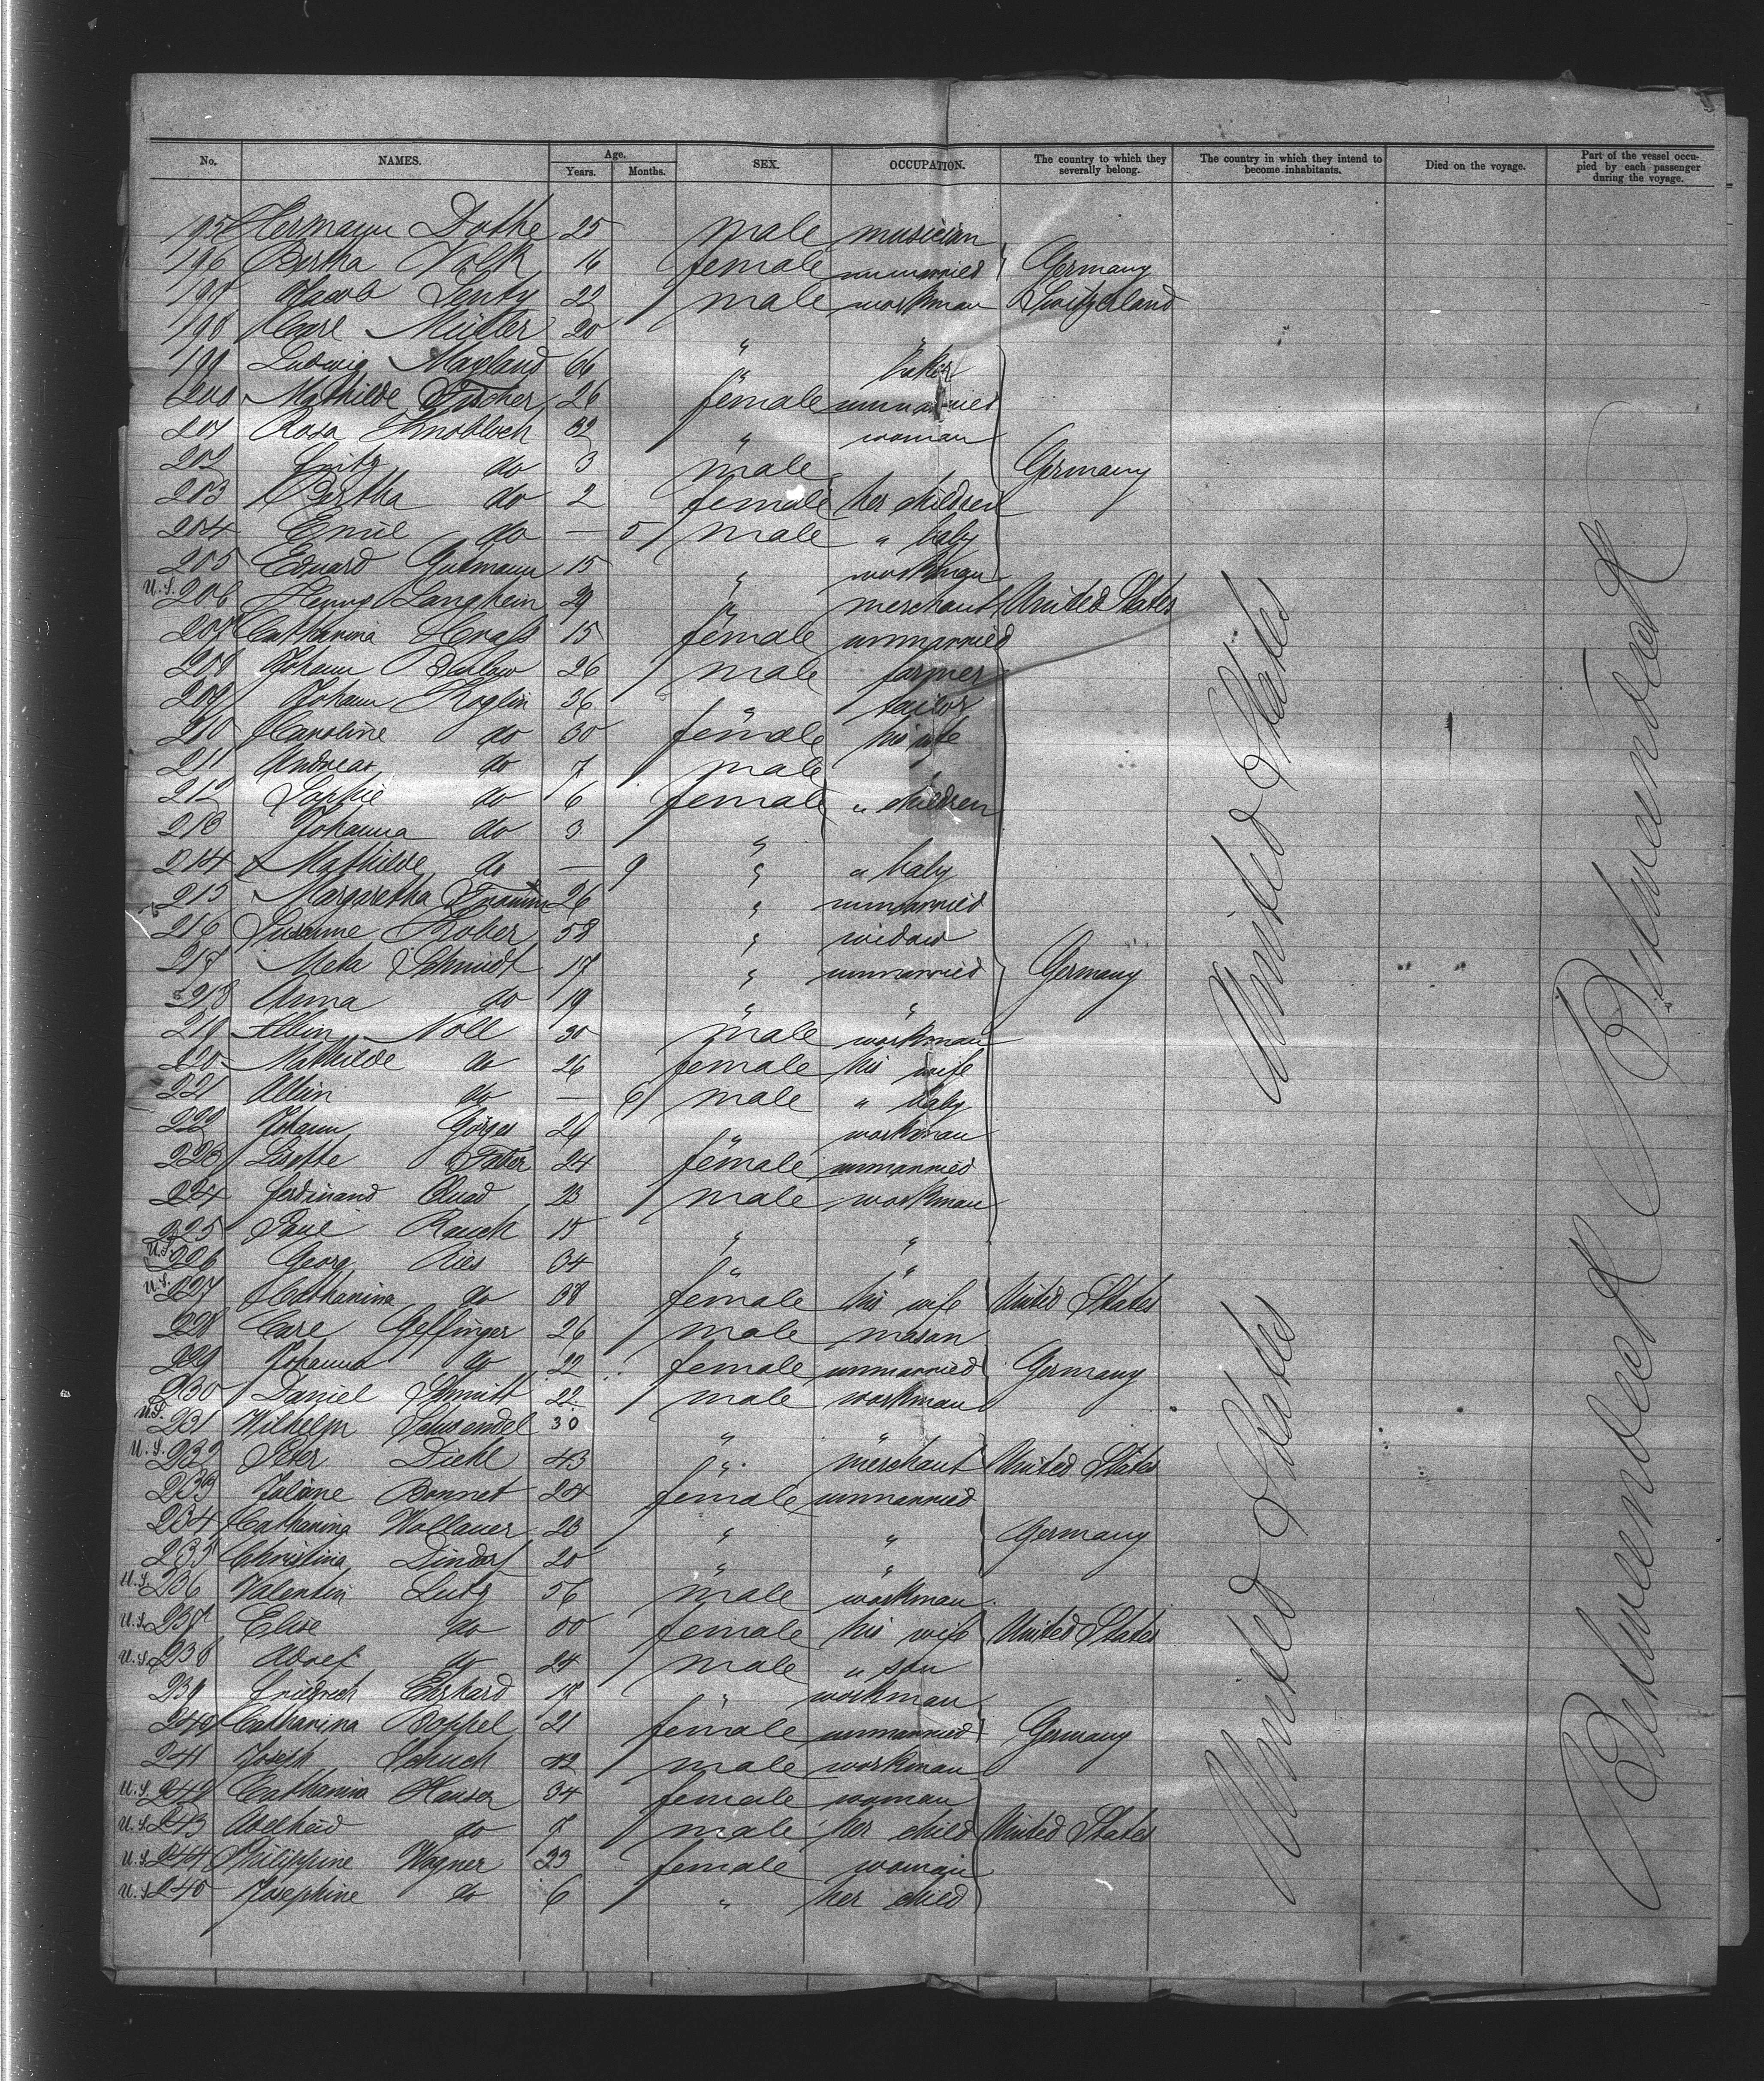 No. NAMES. Age. Years. Months. SEX. OCCUPATION. The country to which they severally belong. The country in which they intend to become inhabitants. Died on the voyage. Part of the vessel occupied by each passenger during the voyage.
195 Hermann Dothe 25 male musician
196 Bertha Volk 16 female unmarried Germany
197 Jacob Senty 22 male workman Switzerland
198 Carl Müller 20 " "
199 Ludwig Mayland 66 " baker
200 Mathilde Fischer 26 female unmarried
201 Rosa Knobloch 32 " woman
202 Fritz do 3 male Germany
203 Bertha do 2 female her children
204 Emil do — 5 male " baby
205 Eduard Gutmann 15 " workman
U.S. 206 Henry Langhein " merchant United States
207 Catharina 15 female unmarried
208 Johann 26 male farmer
209 Johann Koglin 36 " tailor
210 Caroline do 30 female his wife
211 Andreas do 7 male
212 Sophie do 6 female " children
213 Johanna do 3 "
214 Mathilde do — 9 " " baby
215 Margaretha 26 " unmarried
216 Susanne Kober 58 " widow
217 Meta Schmidt 17 " unmarried Germany
218 Anna do 19 " "
219 Albin Noll 30 male workman
220 Mathilde do 26 female his wife
221 Albin do — 6 male " baby
222 Johann Görges " workman
223 Lisette Faber 24 female unmarried
224 Ferdinand Quad 23 male workman
225 Paul Rauch 15 " "
U.S. 226 Georg Ries 34 " "
U.S. 227 Catharina do 38 female his wife United States
228 Carl Geffinger 26 male mason
229 Johanna do 22 female unmarried Germany
230 Daniel Schmitt 22 male workman
U.S. 231 Wilhelm Schwendel 30 " "
U.S. 232 Peter Diehl 43 " merchant United States
233 Juliane Bonnet 24 female unmarried
234 Catharina Wollauer 23 " " Germany
235 Christina Dindorf 20 " "
U.S. 236 Valentin Lutz 56 male workman
U.S. 237 Elise do female his wife United States
U.S. 238 Adolf do 24 male " son
239 Friedrich Ehrhard " workman
240 Catharina Boppel 21 female unmarried Germany
241 Joseph Schuch 42 male workman
U.S. 242 Catharina Hauser 34 female woman
U.S. 243 Adelheid do male her child United States
U.S. 244 Philippine Wagner 33 female woman
U.S. 245 Josephine do 6 " her child
United States
United States
Betweendeck
Betweendeck